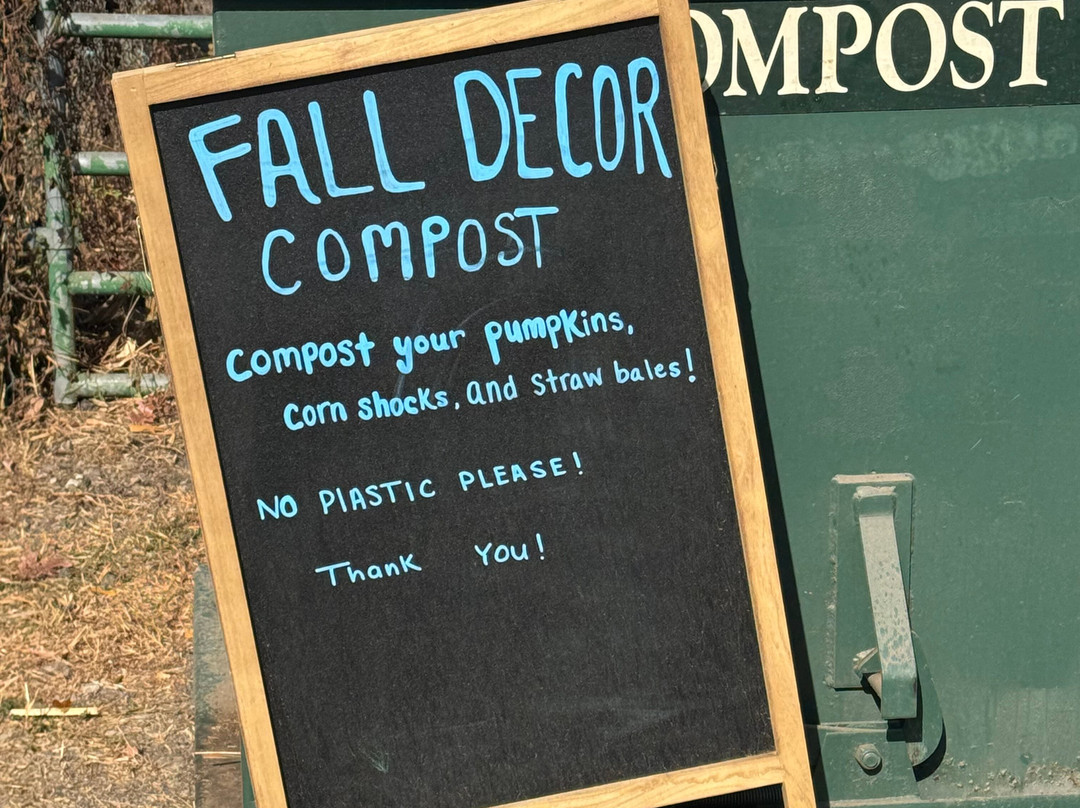 OMPOST
FALL DECOR
COMPOST
Compost your pumpkins,
corn shocks, and straw bales!
NO PLASTIC PLEASE!
Thank You!